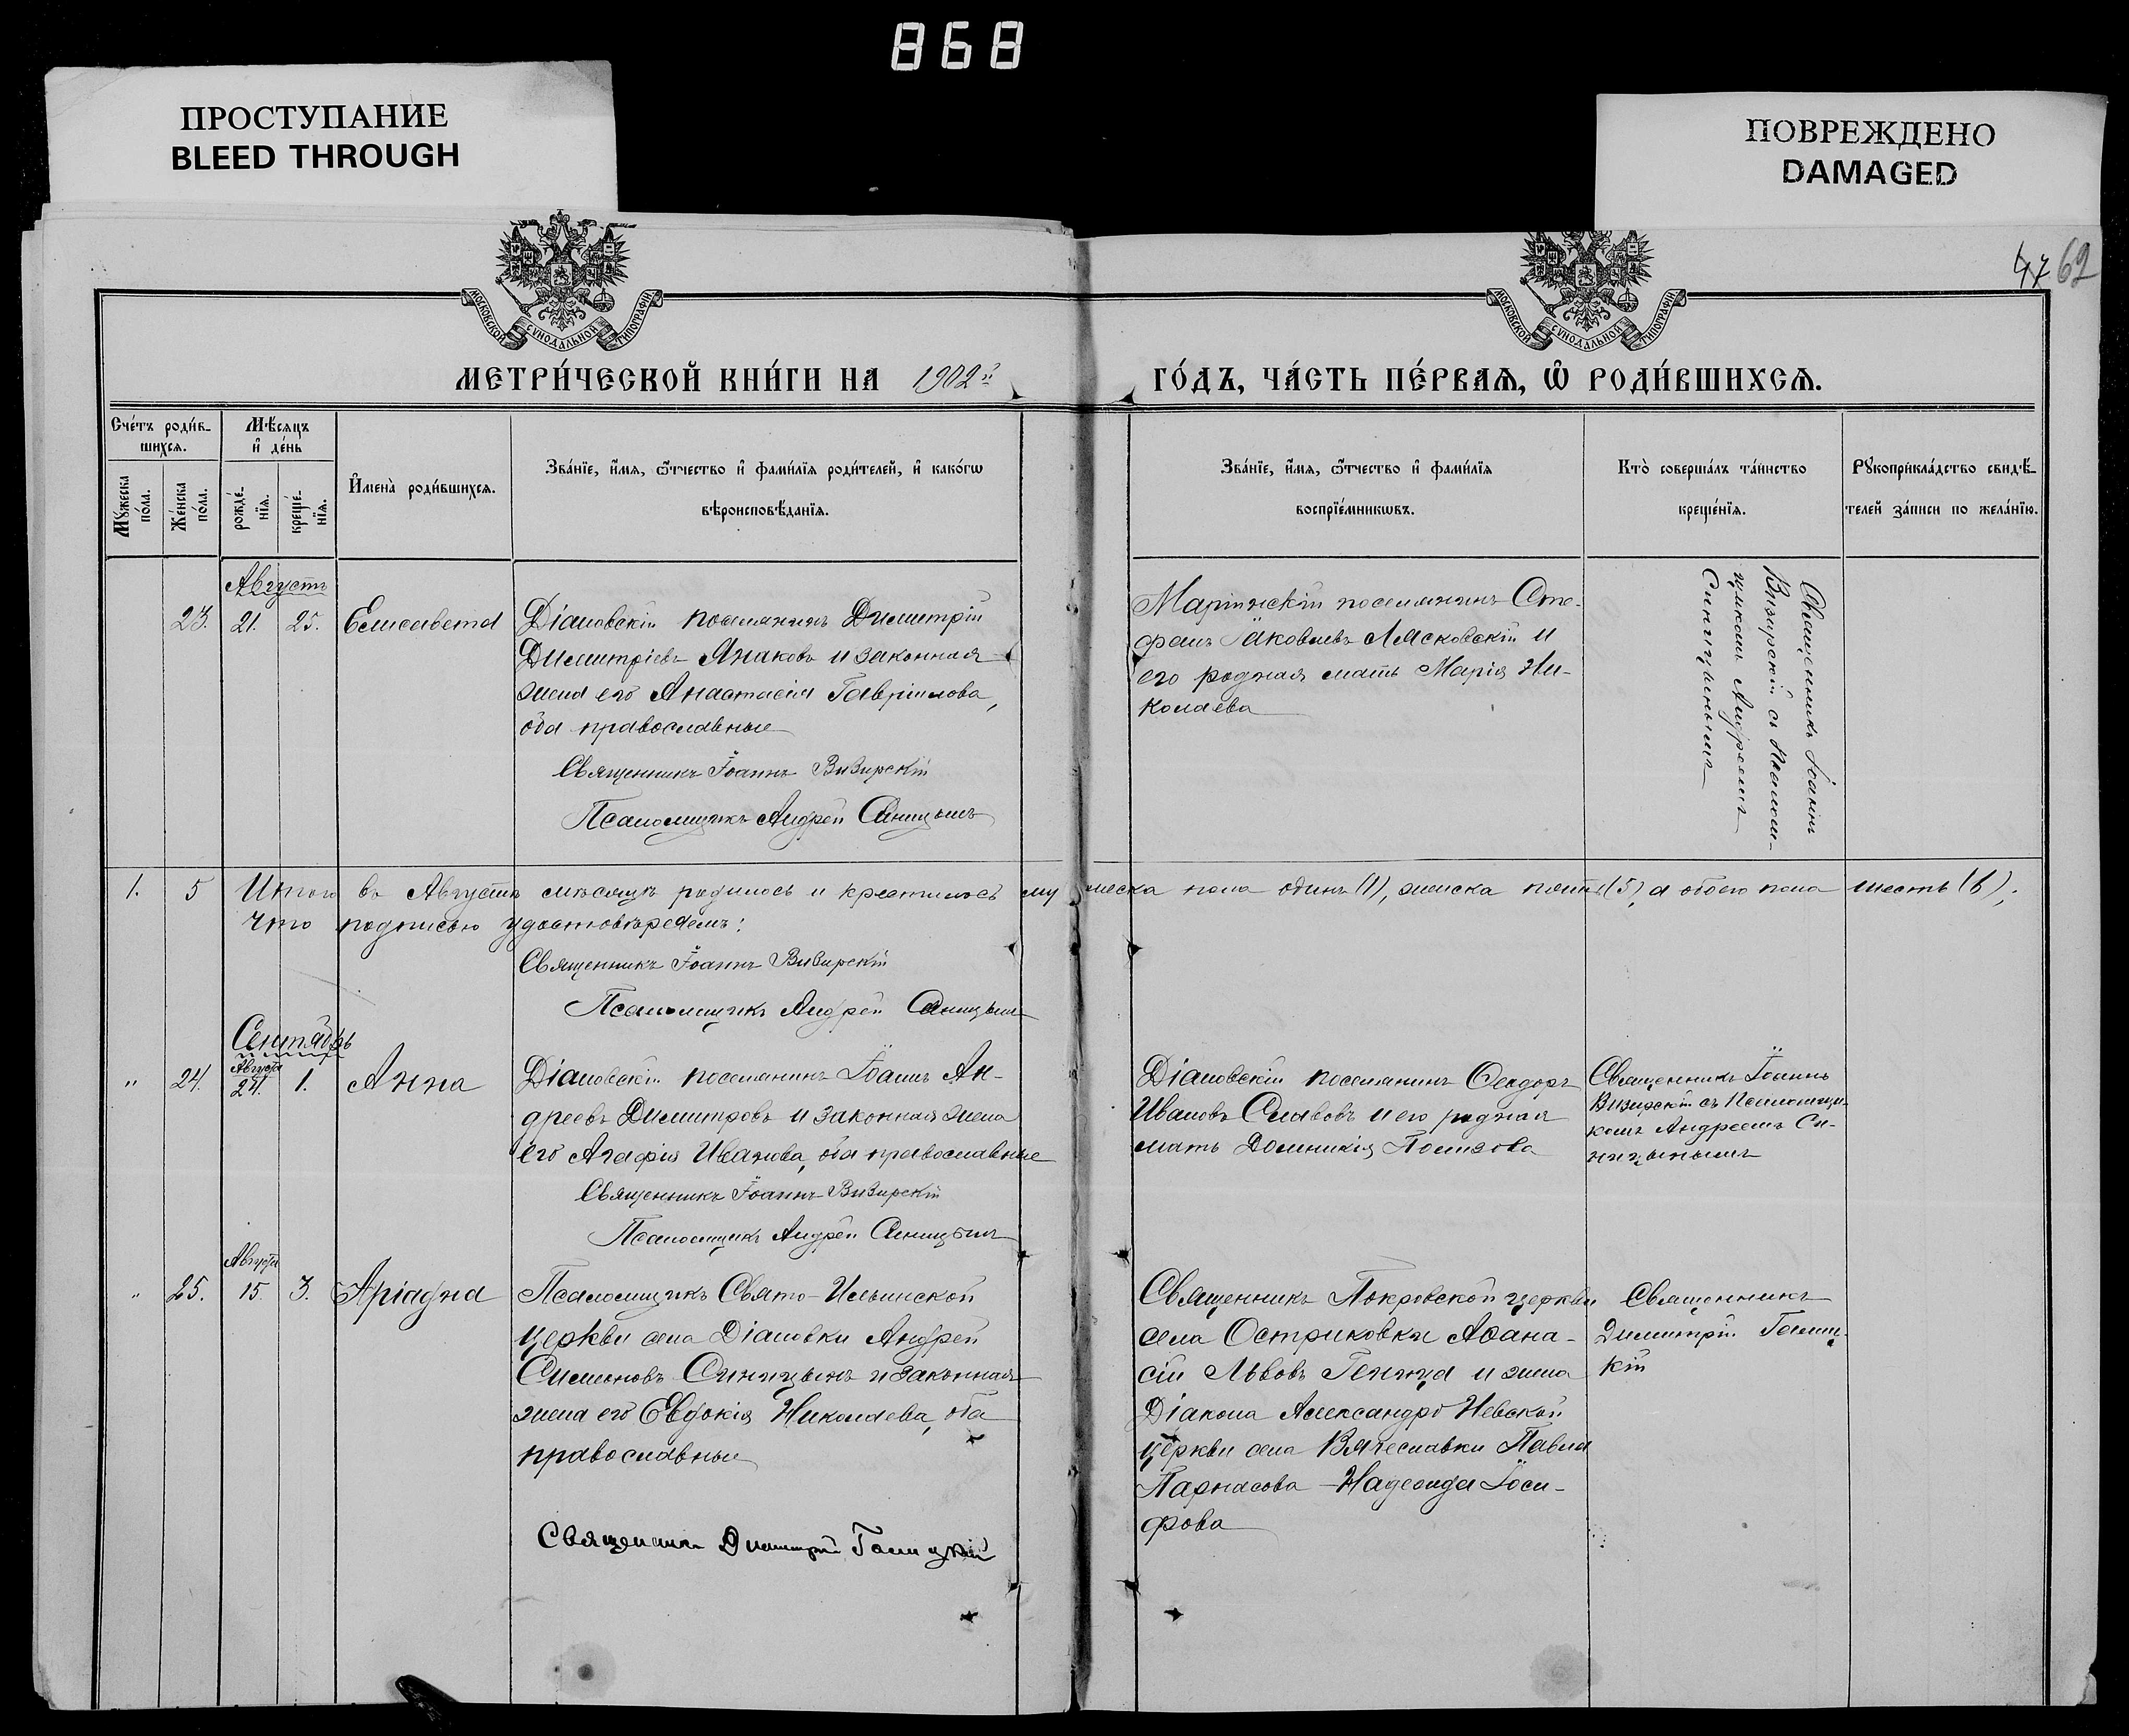 868
ПРОСТУПАНИЕ
BLEED THROUGH
ПОВРЕЖДЕНО
DAMAGED
47 62
МОСКОВСКОЙ СУНОДАЛЬНОЙ ТИПОГРАФІИ
МОСКОВСКОЙ СУНОДАЛЬНОЙ ТИПОГРАФІИ
МЕТРИ́ЧЕСКОЙ КНИ́ГИ НА 1902й ГО́ДЪ, ЧА́СТЬ ПЕ́РВАѦ, Ѽ РОДИ́ВШИХСѦ.
Сче́тъ роди́в-
шихсѧ.
Мꙋ́жеска по́ла.
Же́нска по́ла.
Мѣ́сѧцъ
и҆ де́нь
рожде́-
нїѧ.
креще́-
нїѧ.
И҆мена̀ роди́вшихсѧ.
Зва́нїе, и҆́мѧ, ѻ҆́тчество и҆ фами́лїѧ роди́телей, и҆ како́гѡ
вѣроисповѣ́данїѧ.
Зва́нїе, и҆́мѧ, ѻ҆́тчество и҆ фами́лїѧ
воспрїе́мникѡвъ.
Кто̀ соверша́лъ та́инство
креще́нїѧ.
Рꙋкоприкла́дство свидѣ́-
телей за́писи по жела́нїю.
Августъ
23. 21. 25. Елисавета
Діановскій поселянинъ Димитрій
Димитріевъ Янаковъ и законная
жена его Анастасія Гавріилова,
оба православные
Священникъ Іоаннъ Визирскій
Псаломщикъ Андрей Синицынъ
Маріинскій поселянинъ Сте-
фанъ Іаковлевъ Лясковскій и
его родная мать Марія Ни-
колаева
Священникъ Іоаннъ
Визирскій съ Псалом-
щикомъ Андреемъ
Синицынымъ
1. 5 Итого въ Августѣ мѣсяцѣ родилось и крестилось мужеска пола одинъ (1), женска пять (5), а обоего пола шесть (6),
что подписью удостовѣряемъ:
Священникъ Іоаннъ Визирскій
Псаломщикъ Андрей Синицынъ
Сентябрь
" 24. Августа 24. 1. Анна
Діановскій поселянинъ Іоаннъ Ан-
дреевъ Димитровъ и законная жена
его Агафія Иванова, оба православные
Священникъ Іоаннъ Визирскій
Псаломщикъ Андрей Синицынъ
Діановскій поселянинъ Ѳеодоръ
Ивановъ Славовъ и его родная
мать Домникія
Священникъ Іоаннъ
Визирскій съ Псаломщи-
комъ Андреемъ Си-
ницынымъ
" 25. Августа 15. 3. Аріадна
Псаломщикъ Свято-Ильинской
церкви села Діановки Андрей
Симеоновъ Синицынъ и законная
жена его Евдокія Николаева, оба
православные
Священникъ Димитрій Галицкій
Священникъ Покровской церкви
села Остриковки Аѳана-
сій Львовъ Генина и жена
Діакона Александро Невской
церкви села Вячеславки Павла
Парнасова - Надежда Іоси-
фова
Священникъ
Димитрій Галиц-
кій